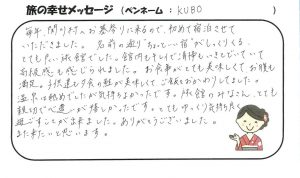 旅の幸せメッセージ (ペンネーム : KUBO )
毎年、関川村へお墓参りに来るので、初めて宿泊させて
いただきました。名前の通り"ちょっといい宿"がしっくりくる、
とても良い旅館でした。館内もキレイで清掃もいきとどいていて
高級感も感じられました。お食事がとても美味しくてお腹も
満足。子供達も夕食の鮭が美味しくてご飯をおかわりしてました。
温泉は熱めでしたが気持ちよかったです。旅館のみなさん、とても
親切で心遣いが嬉しかったです。とてもゆっくり気持ち良く
過ごすことが出来ました。ありがとうございました。
また来たいと思います。